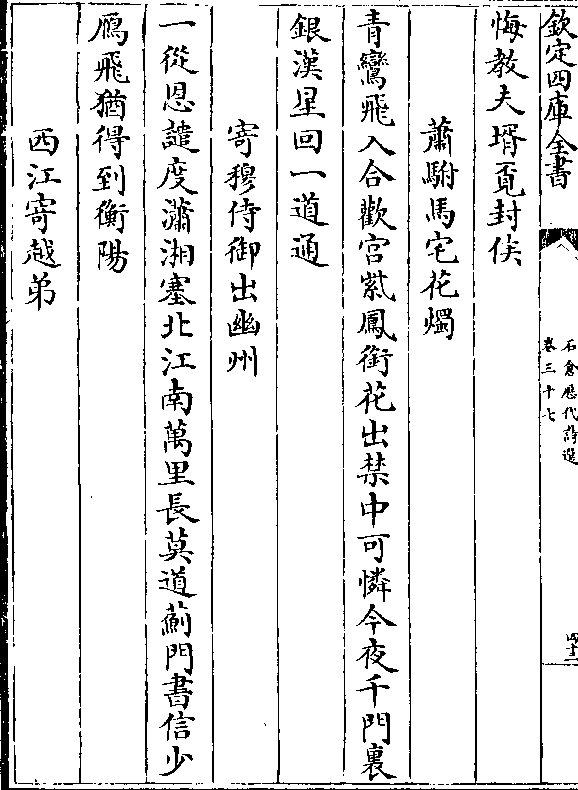 欽定四庫全書
石倉歷代詩選
卷三十七
四十二
悔教夫壻覓封侯
蕭駙馬宅花燭
青鸞飛入合歡宫紫鳳銜花出禁中可憐今夜千門裏
銀漢星回一道通
寄穆侍御出幽州
一從恩譴度瀟湘塞北江南萬里長莫道薊門書信少
鴈飛猶得到衡陽
西江寄越弟